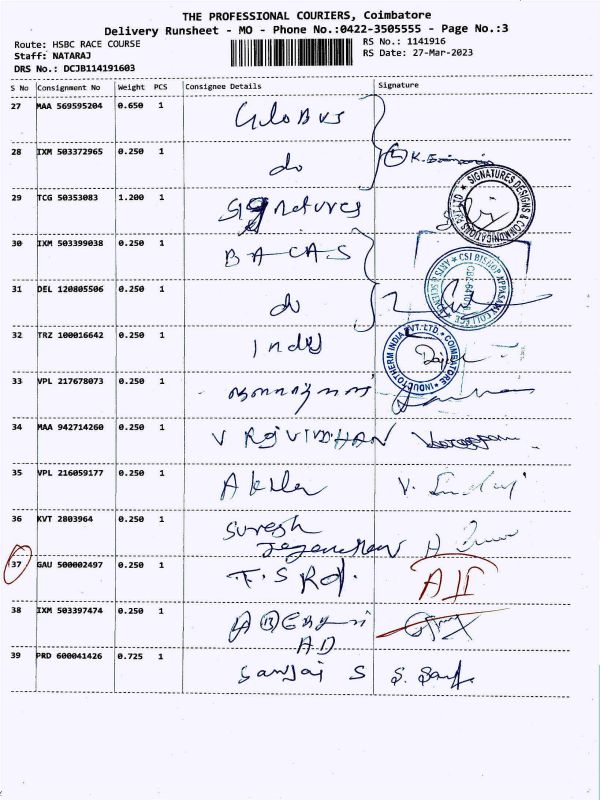 THE PROFESSIONAL COURIERS, Coimbatore
Delivery Runsheet - MO - Phone No.:0422-3505555 - Page No.:3
Route: HSBC RACE COURSE
RS No.: 1141916
Staff: NATARAJ
RS Date: 27-Mar-2023
DRS No.: DCJB114191603
S No Consignment No Weight PCS Consignee Details Signature
27 MAA 569595204 0.650 1 GLOBUS
28 IXM 503372965 0.250 1 do K.
29 TCG 50353083 1.200 1 signatures
SIGNATURES DESIGNS & COMMUNICATIONS PVT LTD
30 IXM 503399038 0.250 1 BACAS
CSI BISHOP APPASAMY COLLEGE ARTS & SCIENCE
31 DEL 120805506 0.250 1 do
32 TRZ 100016642 0.250 1
INDUCTOTHERM INDIA PVT. LTD. COIMBATORE
33 VPL 217678073 0.250 1
34 MAA 942714260 0.250 1 V
35 VPL 216059177 0.250 1 Akila V.
36 KVT 2803964 0.250 1 Suresh
37 GAU 500002497 0.250 1 T.S Rd. AII
38 IXM 503397474 0.250 1
AD
39 PRD 600041426 0.725 1 Sanjai S S.